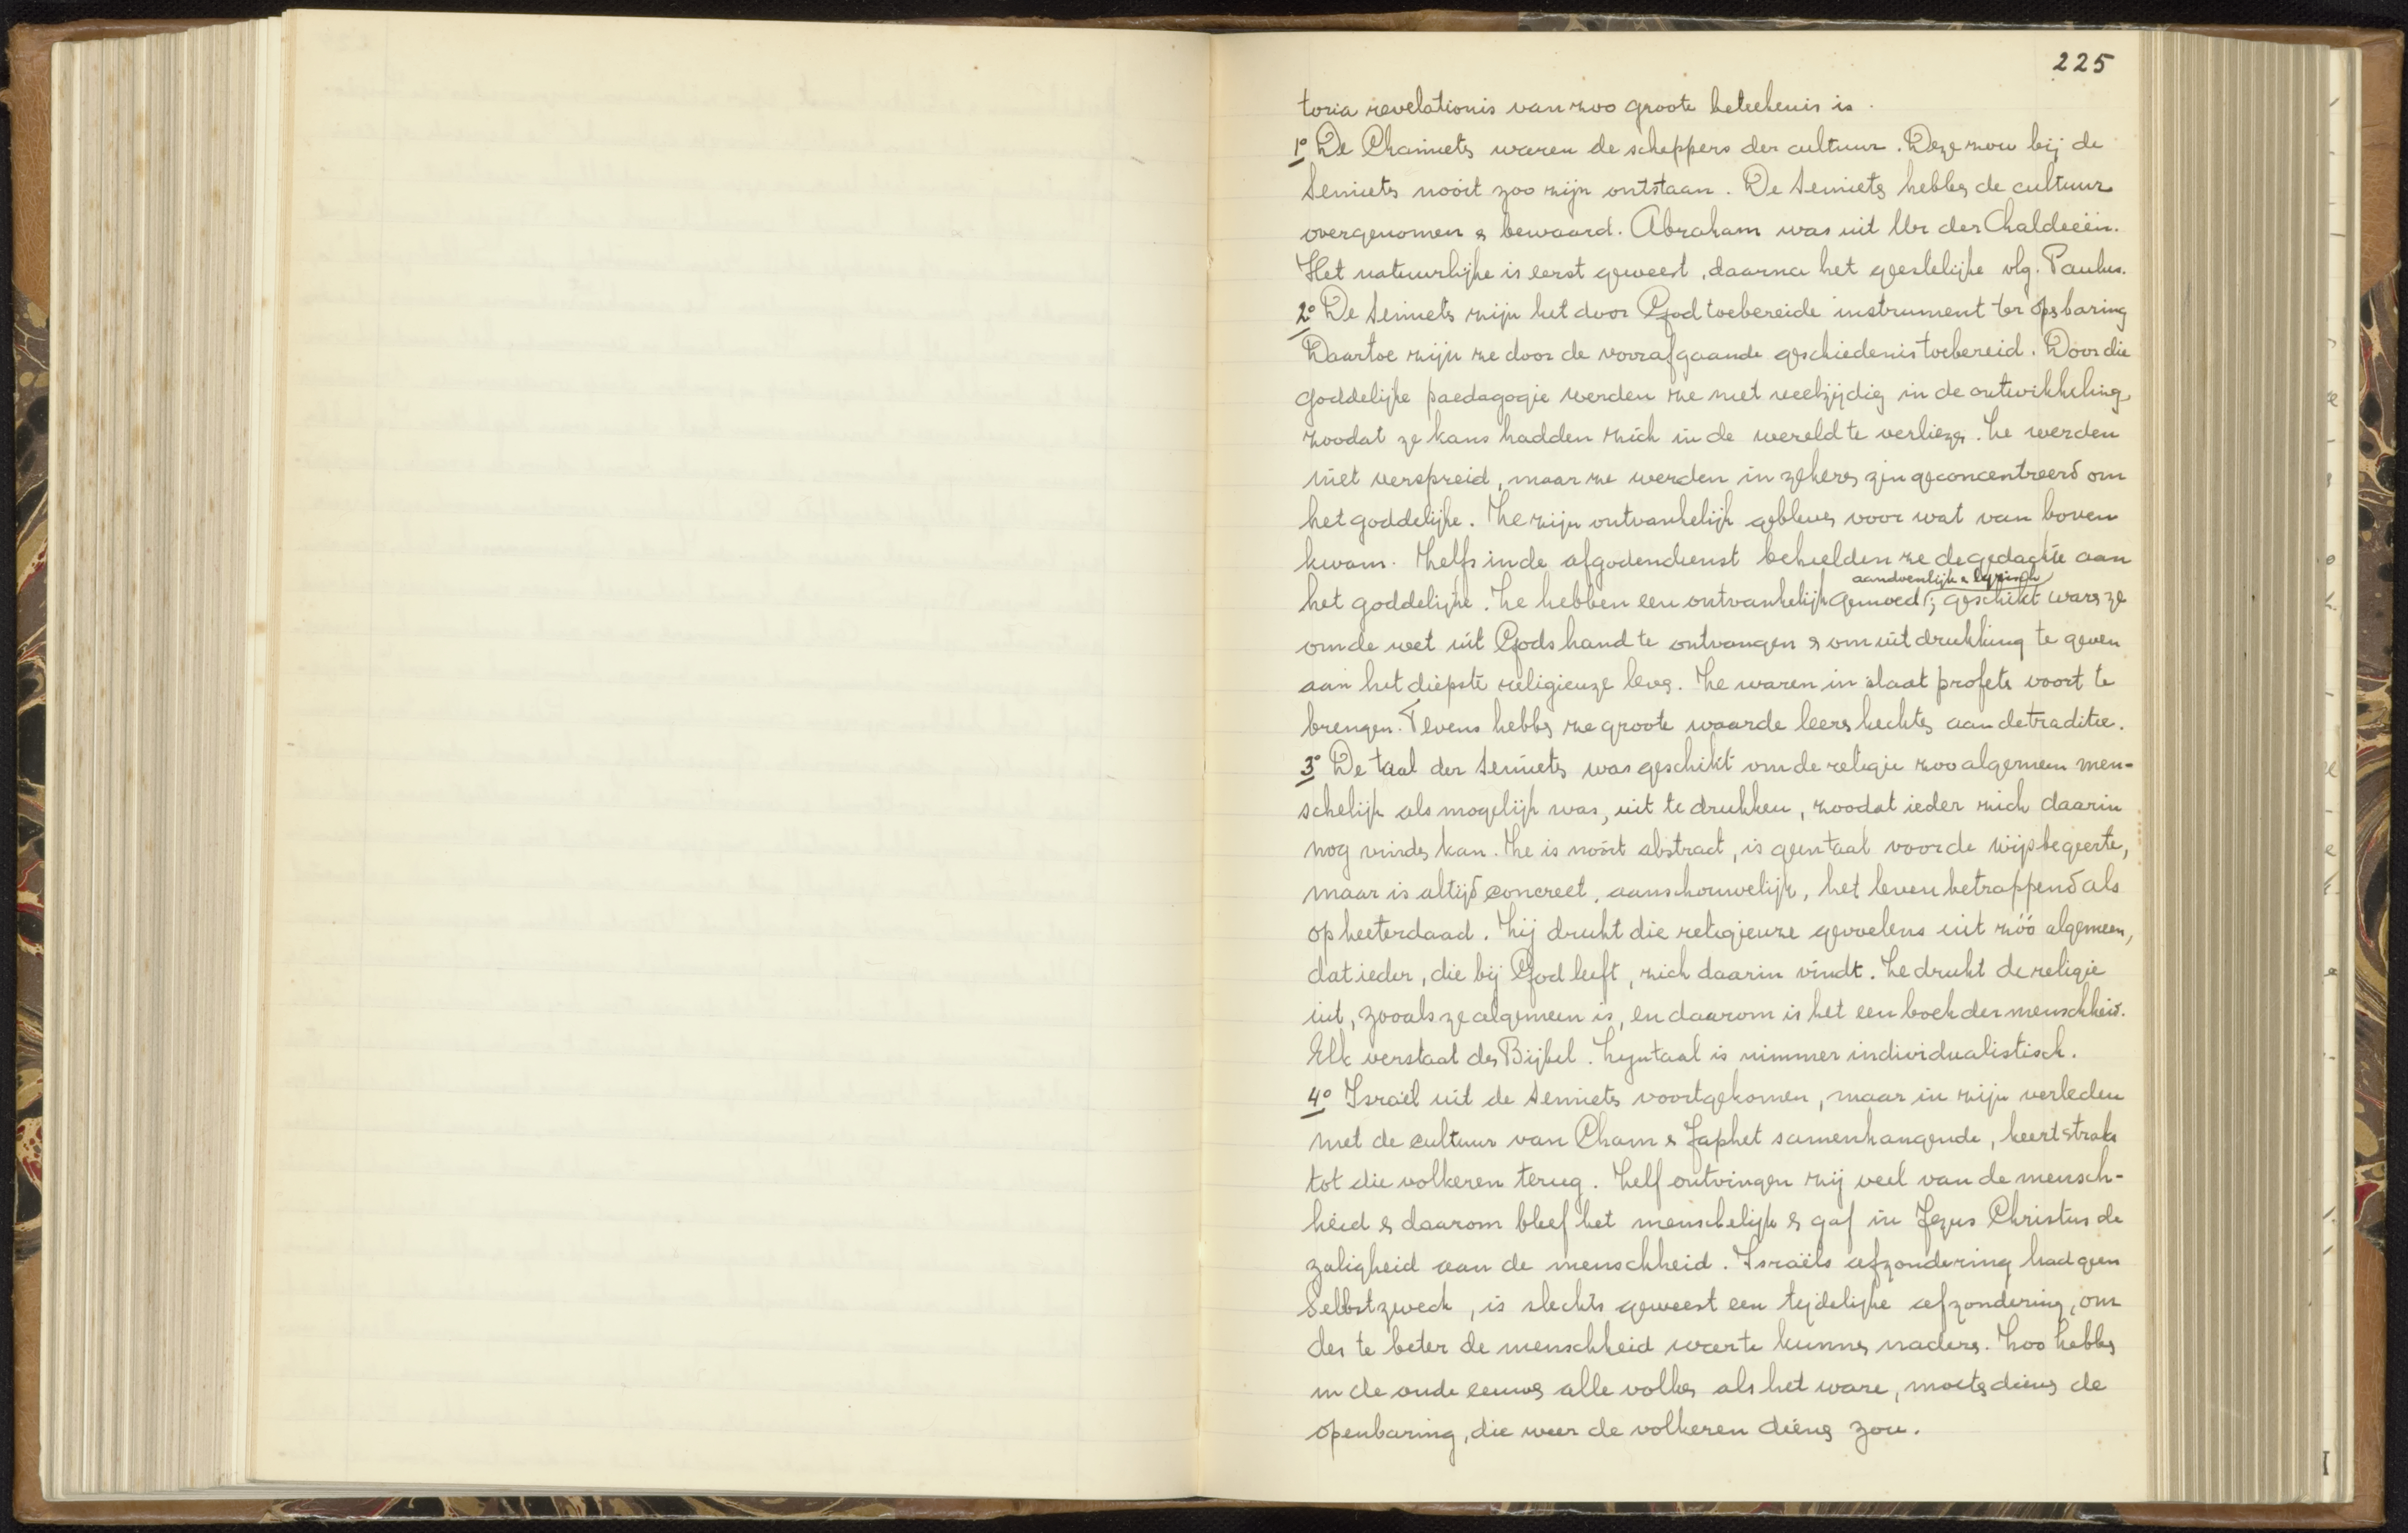 225
toria revelationis van zoo groote beteekenis is.
1° De Chamieten waren de scheppers der cultuur. Deze zou bij de
Semieten nooit zoo zijn ontstaan. De Semieten hebben de cultuur
overgenomen & bewaard. Abraham was uit Ur der Chaldeeën.
Het natuurlijke is eerst geweest, daarna het geestelijke vlg. Paulus.
2° De Semieten zijn het door God toebereide instrument ter openbaring
Daartoe zijn ze door de voorafgaande geschiedenis toebereid. Door die
goddelijke paedagogie werden ze niet veelzijdig in de ontwikkeling,
zoodat ze kans hadden zich in de wereld te verliezen. Ze werden
niet verspreid, maar ze werden in zekeren zin geconcentreerd om
het goddelijke. Ze zijn ontvankelijk gebleven voor wat van boven
kwam. Zelfs in de afgodendienst behielden ze de gedachte aan
aandoenlijk & lyrisch
het goddelijke. Ze hebben een ontvankelijk gemoed; geschikt waren ze
om de wet uit Gods hand te ontvangen & om uitdrukking te geven
aan het diepste religieuze leven. Ze waren in staat profeten voort te
brengen. Tevens hebben ze groote waarde leeren hechten aan de traditie.
3° De taal der Semieten was geschikt om de religie zoo algemeen men-
schelijk als mogelijk was, uit te drukken, zoodat ieder zich daarin
nog vinden kan. Ze is nooit abstract, is geen taal voor de wijsbegeerte,
maar is altijd concreet, aanschouwelijk, het leven betrappend als
op heeterdaad. Zij drukt die religieuze gevoelens uit zóó algemeen,
dat ieder, die bij God leeft, zich daarin vindt. Ze drukt de religie
uit, zooals ze algemeen is, en daarom is het een boek der menschheid.
Elk verstaat den Bijbel. Zijn taal is nimmer individualistisch.
4° Israël uit de Semieten voortgekomen, maar in zijn verleden
met de cultuur van Cham & Japhet samenhangende, keert straks
tot die volkeren terug. Zelf ontvingen zij veel van de mensch-
heid & daarom bleef het menschelijk & gaf in Jezus Christus de
zaligheid aan de menschheid. Israëls afzondering had geen
Selbstzweck, is slechts geweest een tijdelijke afzondering, om
des te beter de menschheid weer te kunnen naderen. Zoo hebben
in de oude eeuwen alle volken als het ware, moeten dienen de
openbaring, die weer de volkeren dienen zou.